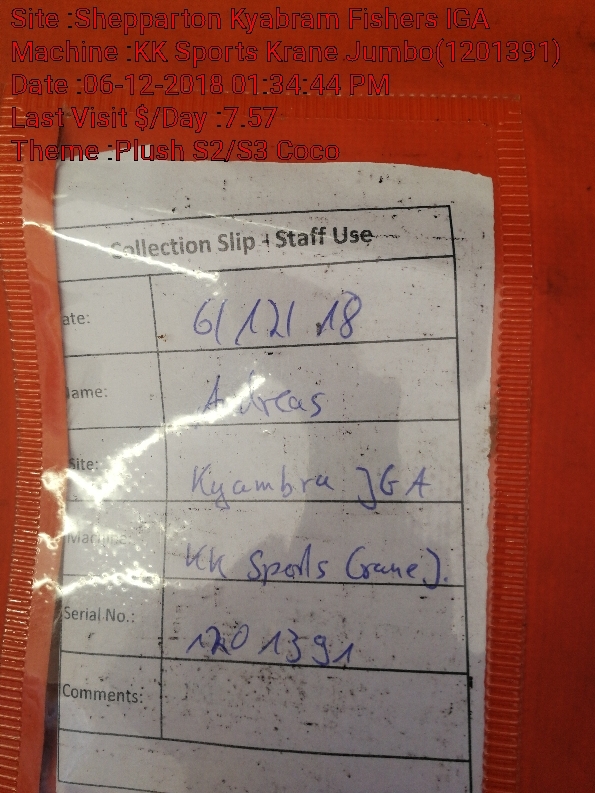 Site :Shepparton Kyabram Fishers IGA
Machine :KK Sports Krane Jumbo(1201391)
Date :06-12-2018 01:34:44 PM
Last Visit $/Day :7.57
Theme :Plush S2/S3 Coco
Collection Slip - Staff Use
ate: 6/12/18
ame: Andreas
Site: Kyambra IGA
Machine: KK Sports Crane).
Serial No.: 1201391
Comments: